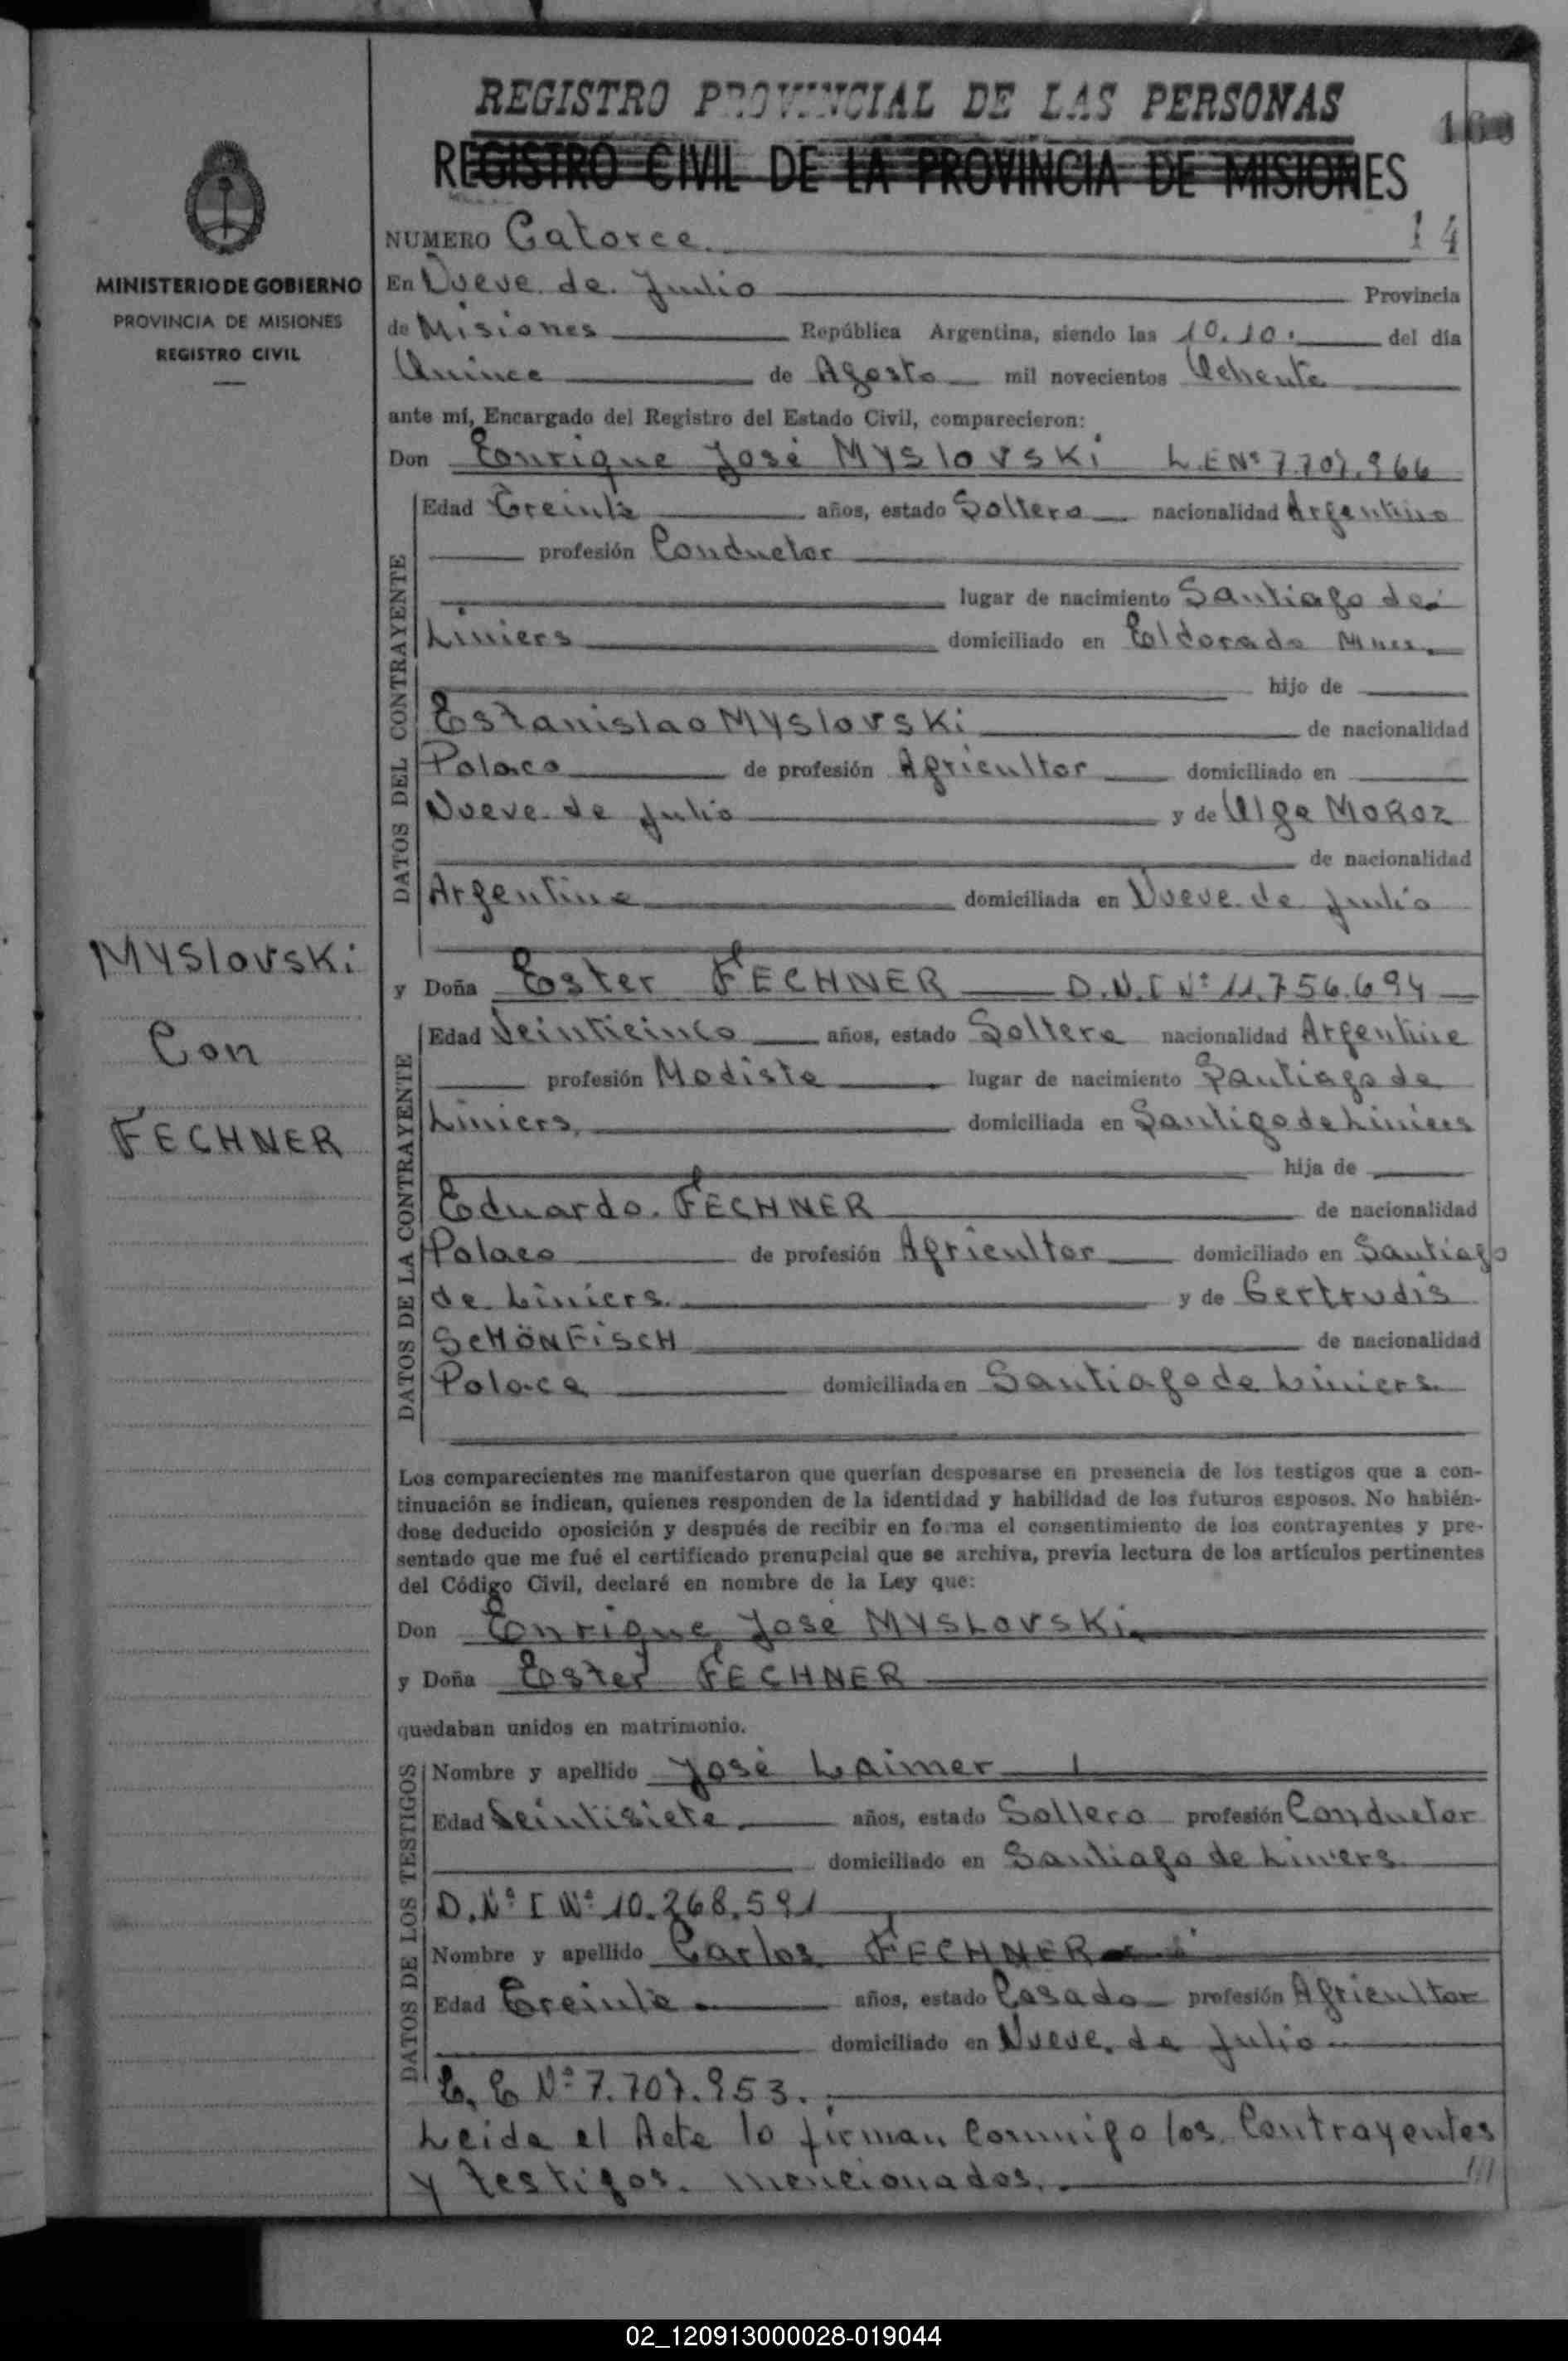 REGISTRO PROVINCIAL DE LAS PERSONAS
REGISTRO CIVIL DE LA PROVINCIA DE MISIONES
MINISTERIO DE GOBIERNO
PROVINCIA DE MISIONES
REGISTRO CIVIL
NUMERO Catorce. 14
En Nueve de Julio Provincia
de Misiones República Argentina, siendo las 10.10. del día
Quince de Agosto mil novecientos Ochenta
ante mí, Encargado del Registro del Estado Civil, comparecieron:
Don Enrique José MYSlovSKi L.E Nº 7.707.966
DATOS DEL CONTRAYENTE
Edad Treinta años, estado Soltero nacionalidad Argentino
profesión Conductor
lugar de nacimiento Santiago de
Liniers domiciliado en Eldorado Mnes.
hijo de
Estanislao MYSlovSKi de nacionalidad
Polaco de profesión Agricultor domiciliado en
Nueve de Julio y de Olga MoRoz
de nacionalidad
Argentina domiciliada en Nueve de Julio
MYSlovSKi
Con
FECHNER
y Doña Ester FECHNER D.N.I Nº 11.756.694
DATOS DE LA CONTRAYENTE
Edad Veinticinco años, estado Soltera nacionalidad Argentina
profesión Modista lugar de nacimiento Santiago de
Liniers. domiciliada en Santigo de Liniers
hija de
Eduardo. FECHNER de nacionalidad
Polaco de profesión Agricultor domiciliado en Santiago
de Liniers. y de Gertrudis
SCHÖNFiSCH de nacionalidad
Polaca domiciliada en Santiago de Liniers.
Los comparecientes me manifestaron que querían desposarse en presencia de los testigos que a con-
tinuación se indican, quienes responden de la identidad y habilidad de los futuros esposos. No habién-
dose deducido oposición y después de recibir en forma el consentimiento de los contrayentes y pre-
sentado que me fué el certificado prenupcial que se archiva, previa lectura de los artículos pertinentes
del Código Civil, declaré en nombre de la Ley que:
Don Enrique José MYSLovSKi.
y Doña Ester FECHNER
quedaban unidos en matrimonio.
DATOS DE LOS TESTIGOS
Nombre y apellido José Laimer
Edad Veintisiete. años, estado Soltero profesión Conductor
domiciliado en Santiago de Liniers
D.Nº I Nº 10.268.591
Nombre y apellido Carlos FECHNER
Edad Treinta años, estado Casado profesión Agricultor
domiciliado en Nueve de Julio
L.E Nº 7.707.953.
Leida el Acta lo firman Conmigo los Contrayentes
y testigos. mencionados. ///
02_120913000028-019044